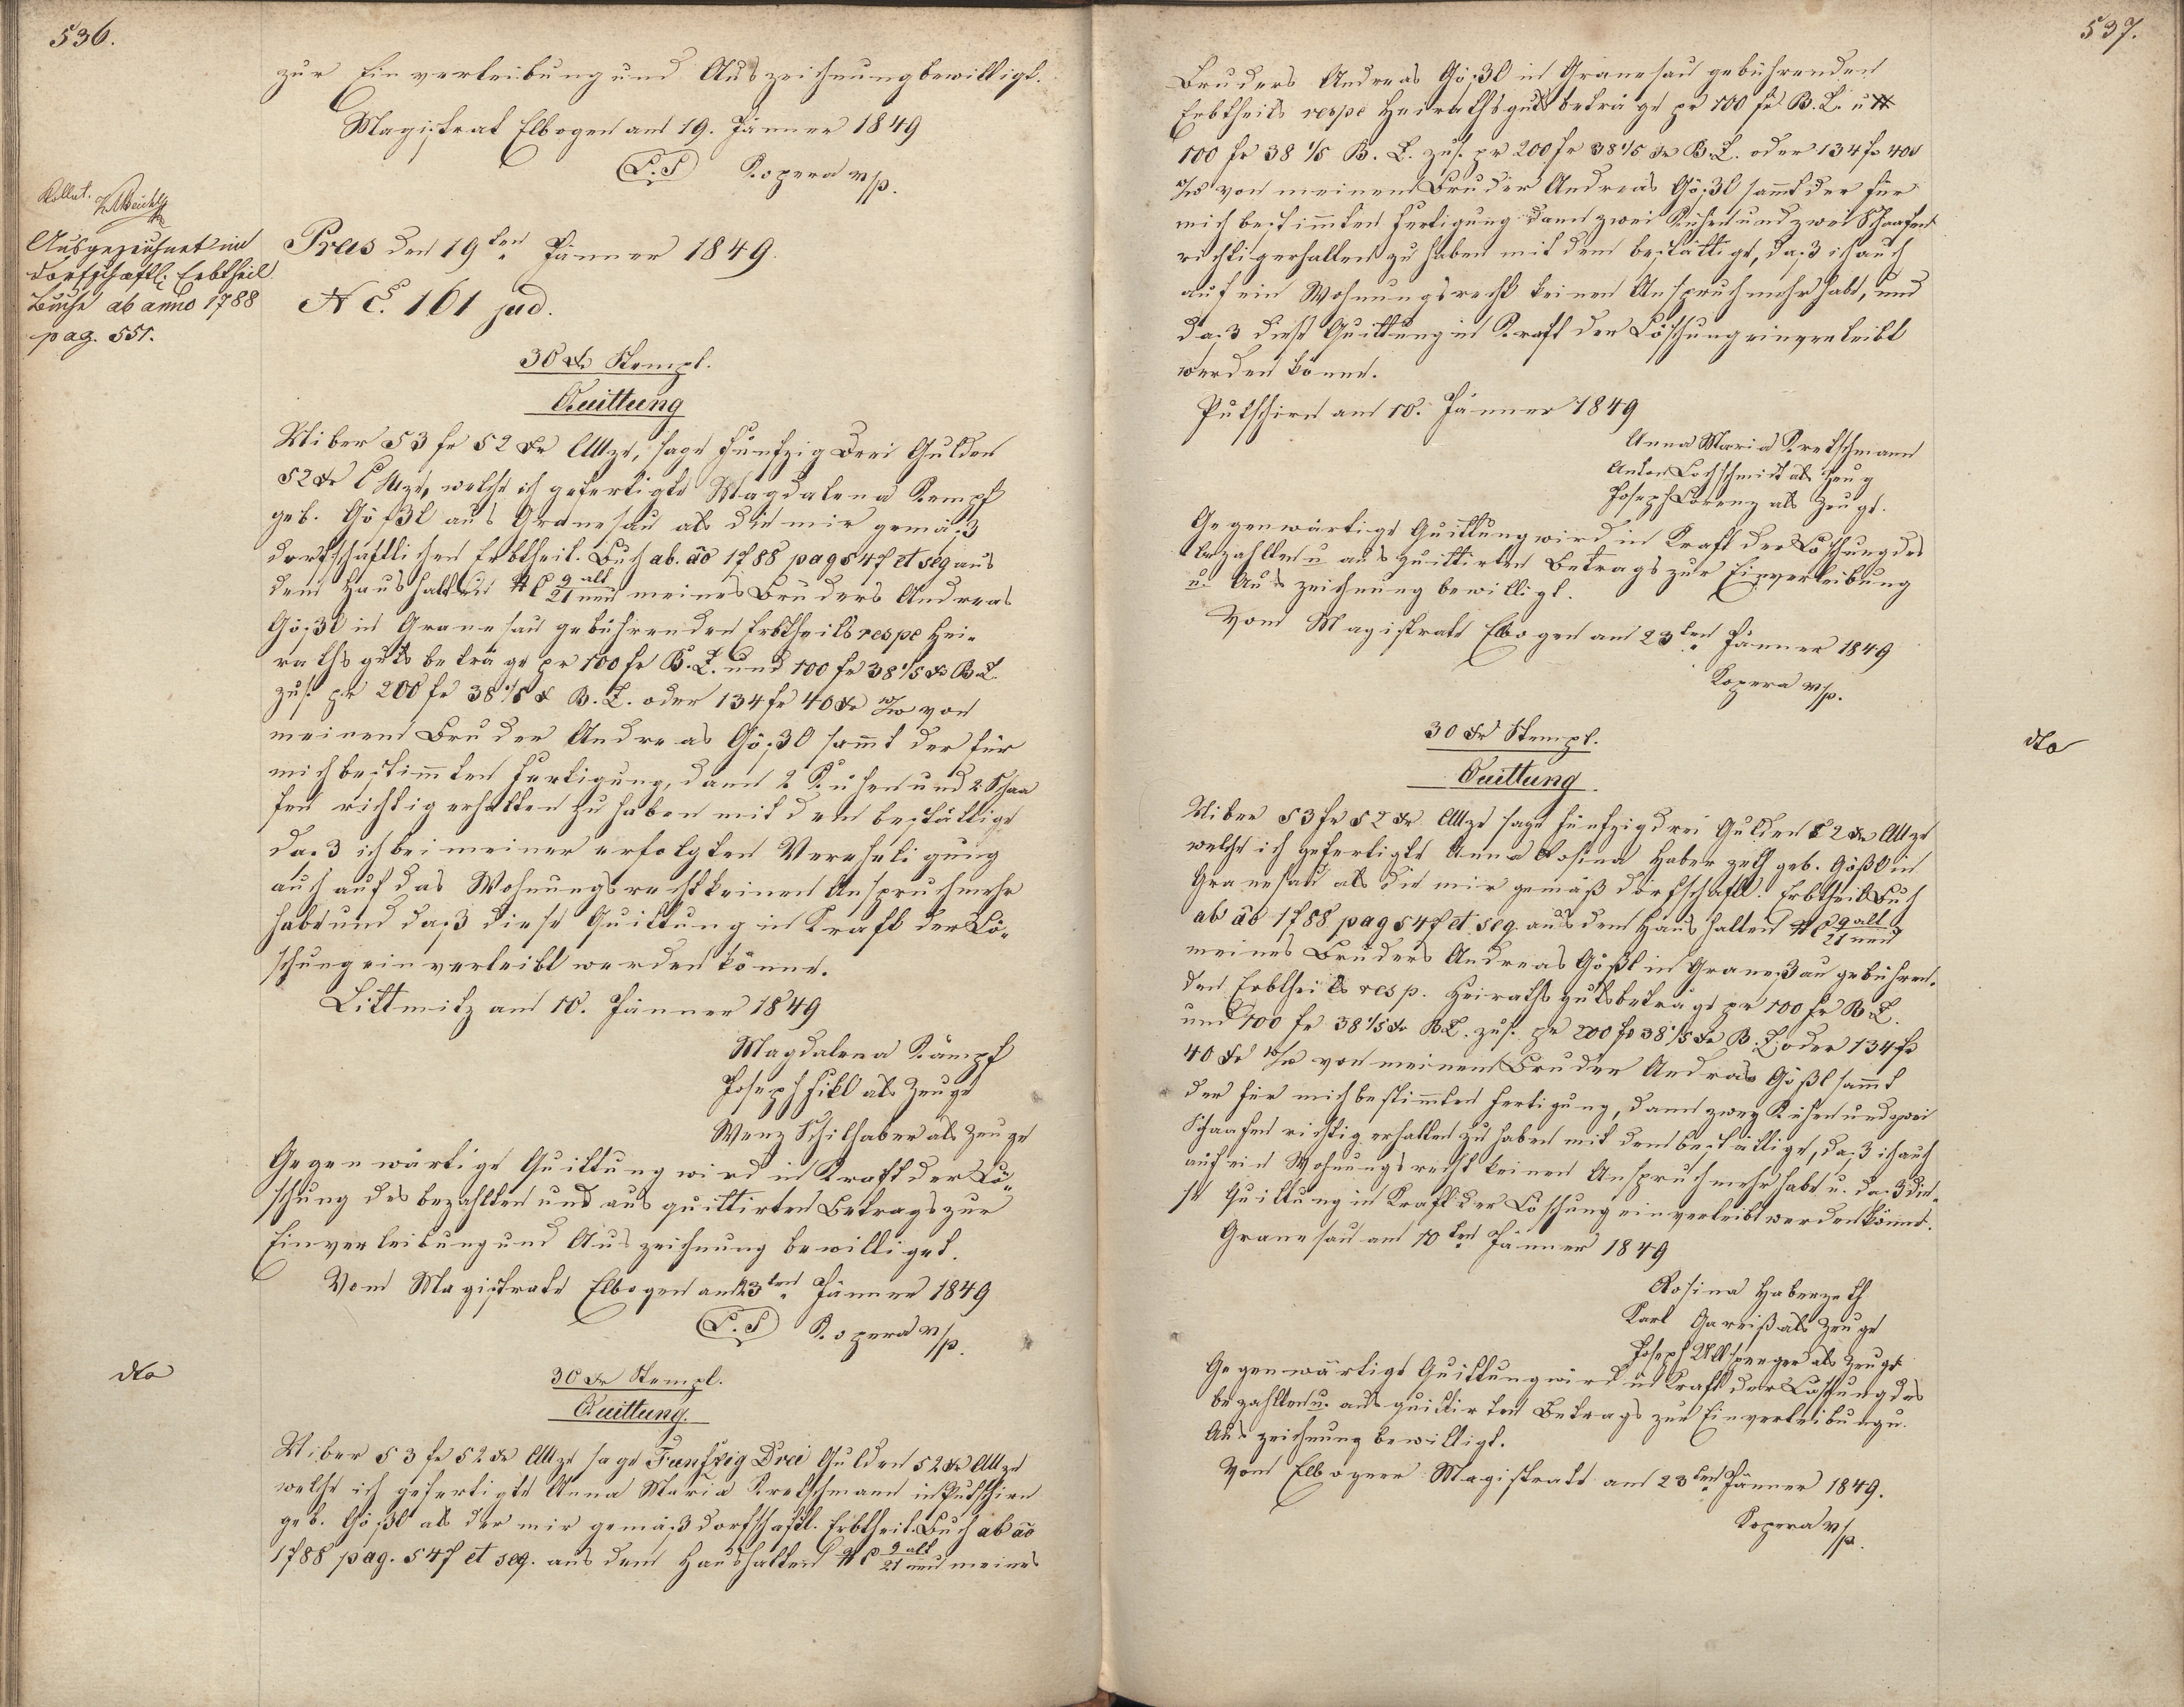 536.
zur Einverleibung und Auszeichnung bewilligt.
Magistrat Elbogen am 19. Jänner 1849
L.S Kopera m/p.
Kollat.
Ausgezeichnet im
dorfschaftl. Erbtheil
Buche ab anno 1788
pag. 551.
Pras den 19ten Jänner 1849.
N E. 161 jud.
30 xr Stempl.
Quittung
Uiber 53 fr 52 xr CMze, sage Fünfzig Drei Gulden
52 xr CMze, welche ich gefertigte Magdalena Kempf
geb. Gößl aus Granesau als die mir gemäß
dorfschaftlichen Erbtheil. Buch ab. ao 1788 pag 547 et seq aus
dem Haushalten N C 9 alt / 21 neu meines Bruders Andreas
Gößl in Granesau gebührenden Erbtheils respe Hei-
rathsguts beträge pr 100 fr B.Z. und 100 fr 38 1/5 xr B.Z.
zus. pr 200 fr 38 1/5 xr B.Z. oder 134 fr 40 xr W/W von
meinem Bruder Andreas Gößl sammt der für
mich bestimmten Fertigung, dann 2 Kühen und 2 Schaa
fen richtig erhalten zu haben mit dem bestättige
daß ich bei meiner erfolgten Verehligung
auch auf das Wohnungsrecht keinen Anspruch mehr
habe und daß diese Quittung in Kraft der Lö-
schung einverleibt werden könne.
Littmitz am 10. Jänner 1849
Magdalena Kämpf
Joseph Fikl als Zeuge
Wenz Schilhaber als Zeuge
Gegenwärtige Quittung wird in Kraft der Lö-
schung des bezahlten und ausquittirten Betrags zur
Einverleibung und Auszeichnung bewilliget.
Vom Magistrate Elbogen am 23ten Jänner 1849
L.S Kopera m/p.
dto
30 xr Stempl.
Quittung.
Uiber 53 fr 52 xr CMze sage Fünfzig Drei Gulden 52 xr CMze
welche ich gefertigte Anna Maria Kretschmann in Putschirn
geb. Gößl als der mir gemäß dorfschaftl. Erbtheil. Buch ab ao
1788 pag. 547 et seq. aus dem Haushalten N C 9 alt / 21 neu meines
537.
Bruders Andreas Gößl in Granesau gebührenden
Erbtheils respe Heirathsguts beträge pr 100 fr B.Z. u
100 fr 38 1/5 B.Z. zus. pr 200 fr 38 1/5 xr B.Z. oder 134 fr 40 x
W/W von meinem Bruder Andreas Gößl sammt der für
mich bestimmten Fertigung dann zwei Kühen und zwei Schaafen
richtig erhalten zu haben mit dem bestättige, daß ich auch
auf ein Wohnungsrecht keinen Anspruch mehr habe, und
daß diese Quittung in Kraft der Löschung einverleibt
werden könne.
Putschirn am 10. Jänner 1849
Anna Maria Kretschmann
Anton Lochschmidt als Zeug
Joseph Lorenz als Zeuge.
Gegenwärtige Quittung wird in Kraft der Löschung des
bezahlten u ausquittirten Betrags zur Einverleibung
u. Auszeichnung bewilligt.
Vom Magistrate Elbogen am 23ten Jänner 1849
Kopera m/p.
dto
30 xr Stempl.
Quittung.
Uiber 53 fr 52 xr CMze sage fünfzigdrei Gulden 52 xr CMze
welche ich gefertigte Anna Rosina Haberzeth geb. Gößl in
Granesau als die mir gemäß dorfschaftl. Erbtheil Buch
ab ao 1788 pag 547 et seq. aus dem Haushalten N C 9 alt / 21 neu
meines Bruders Andreas Gößl in Graneßau gebühren-
den Erbtheils resp. Heirathsgutsbeträge pr 100 fr B.Z.
und 100 fr 38 1/5 xr BZ. zus. pr 200 fr 38 1/5 xr B.Z. oder 134 fr
40 xr W/W von meinem Bruder Andreas Gößl sammt
der für mich bestimmten Fertigung, dann zwey Kühen und zwei
Schaafen richtig erhalten zu haben mit dem bestättige, daß ich auch
auf ein Wohnungsrecht keinen Anspruch mehr habe u. daß die-
se Quittung in Kraft der Löschung einverleibt werden könne.
Granesau am 10ten Jänner 1849
Rosina Haberzeth
Karl Gareiß als Zeuge
Joseph Ullsperger als Zeuge
Gegenwärtige Quittung wird in Kraft der Löschung des
bezahlten u. ausquittirten Betrags zur Einverleibung u.
Auszeichnung bewilligt.
Vom Elbogner Magistrate am 23ten Jänner 1849.
Kopera m/p.